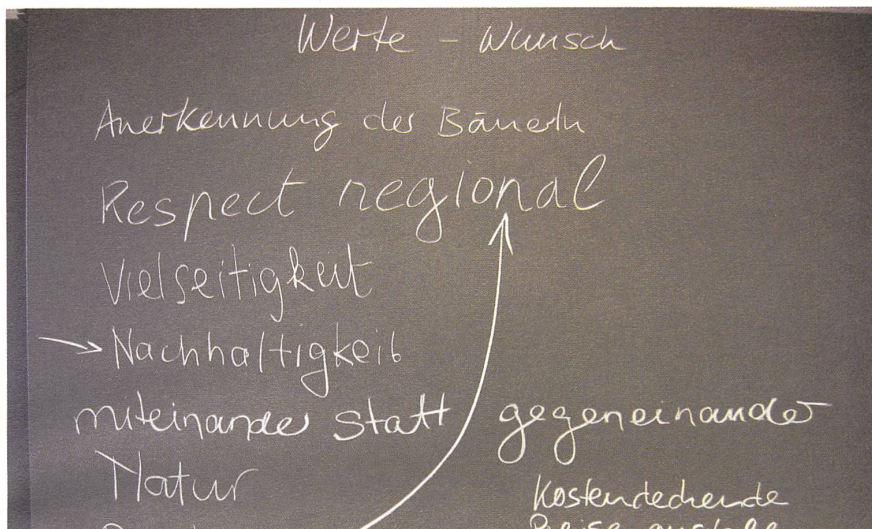 Werte - Wunsch
Anerkennung der Bäuerin
Respect regional
Vielseitigkeit
Nachhaltigkeit
miteinander statt gegeneinander
Natur
Kostendeckende
Preise anstelle